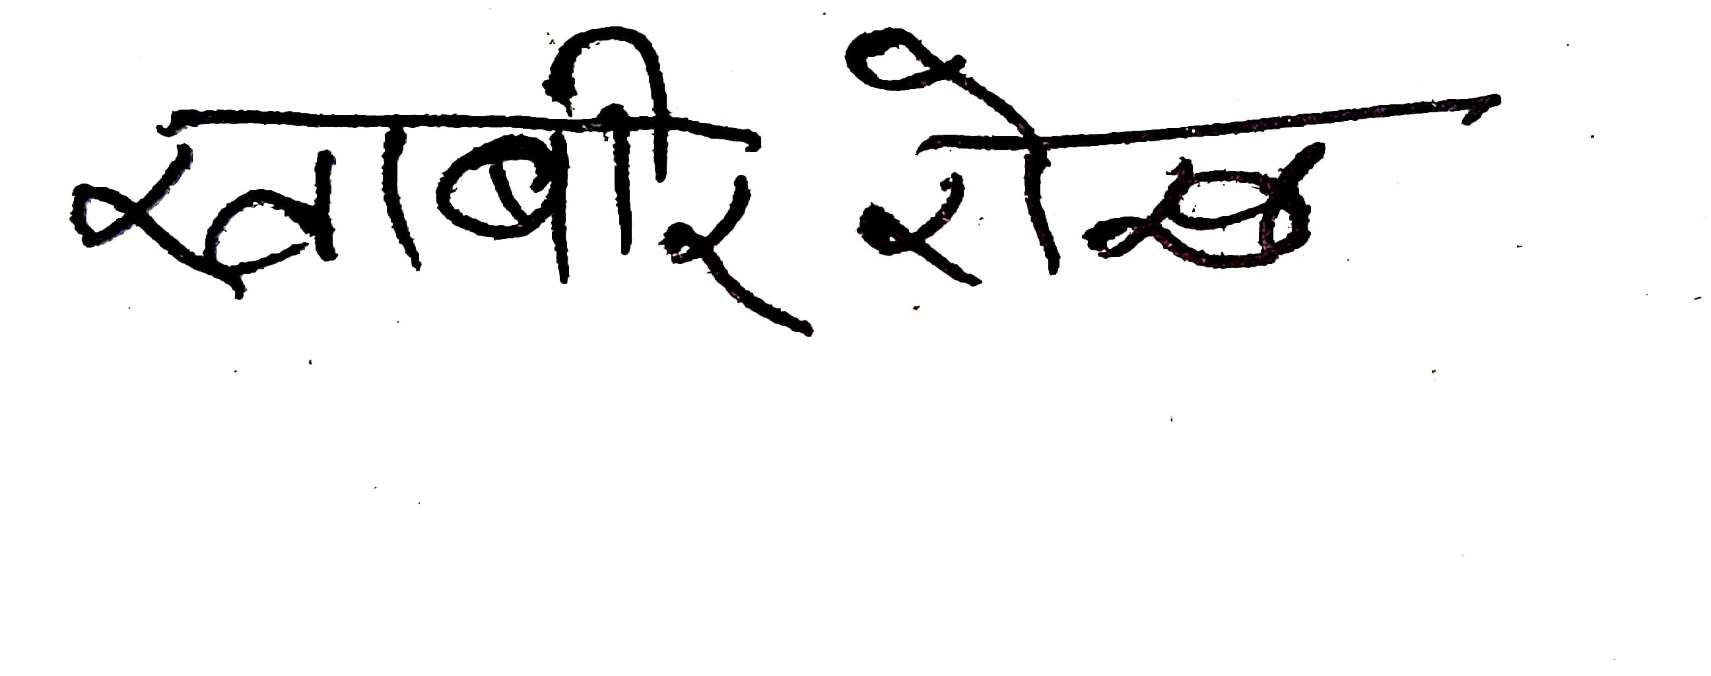 खाबीर रोख